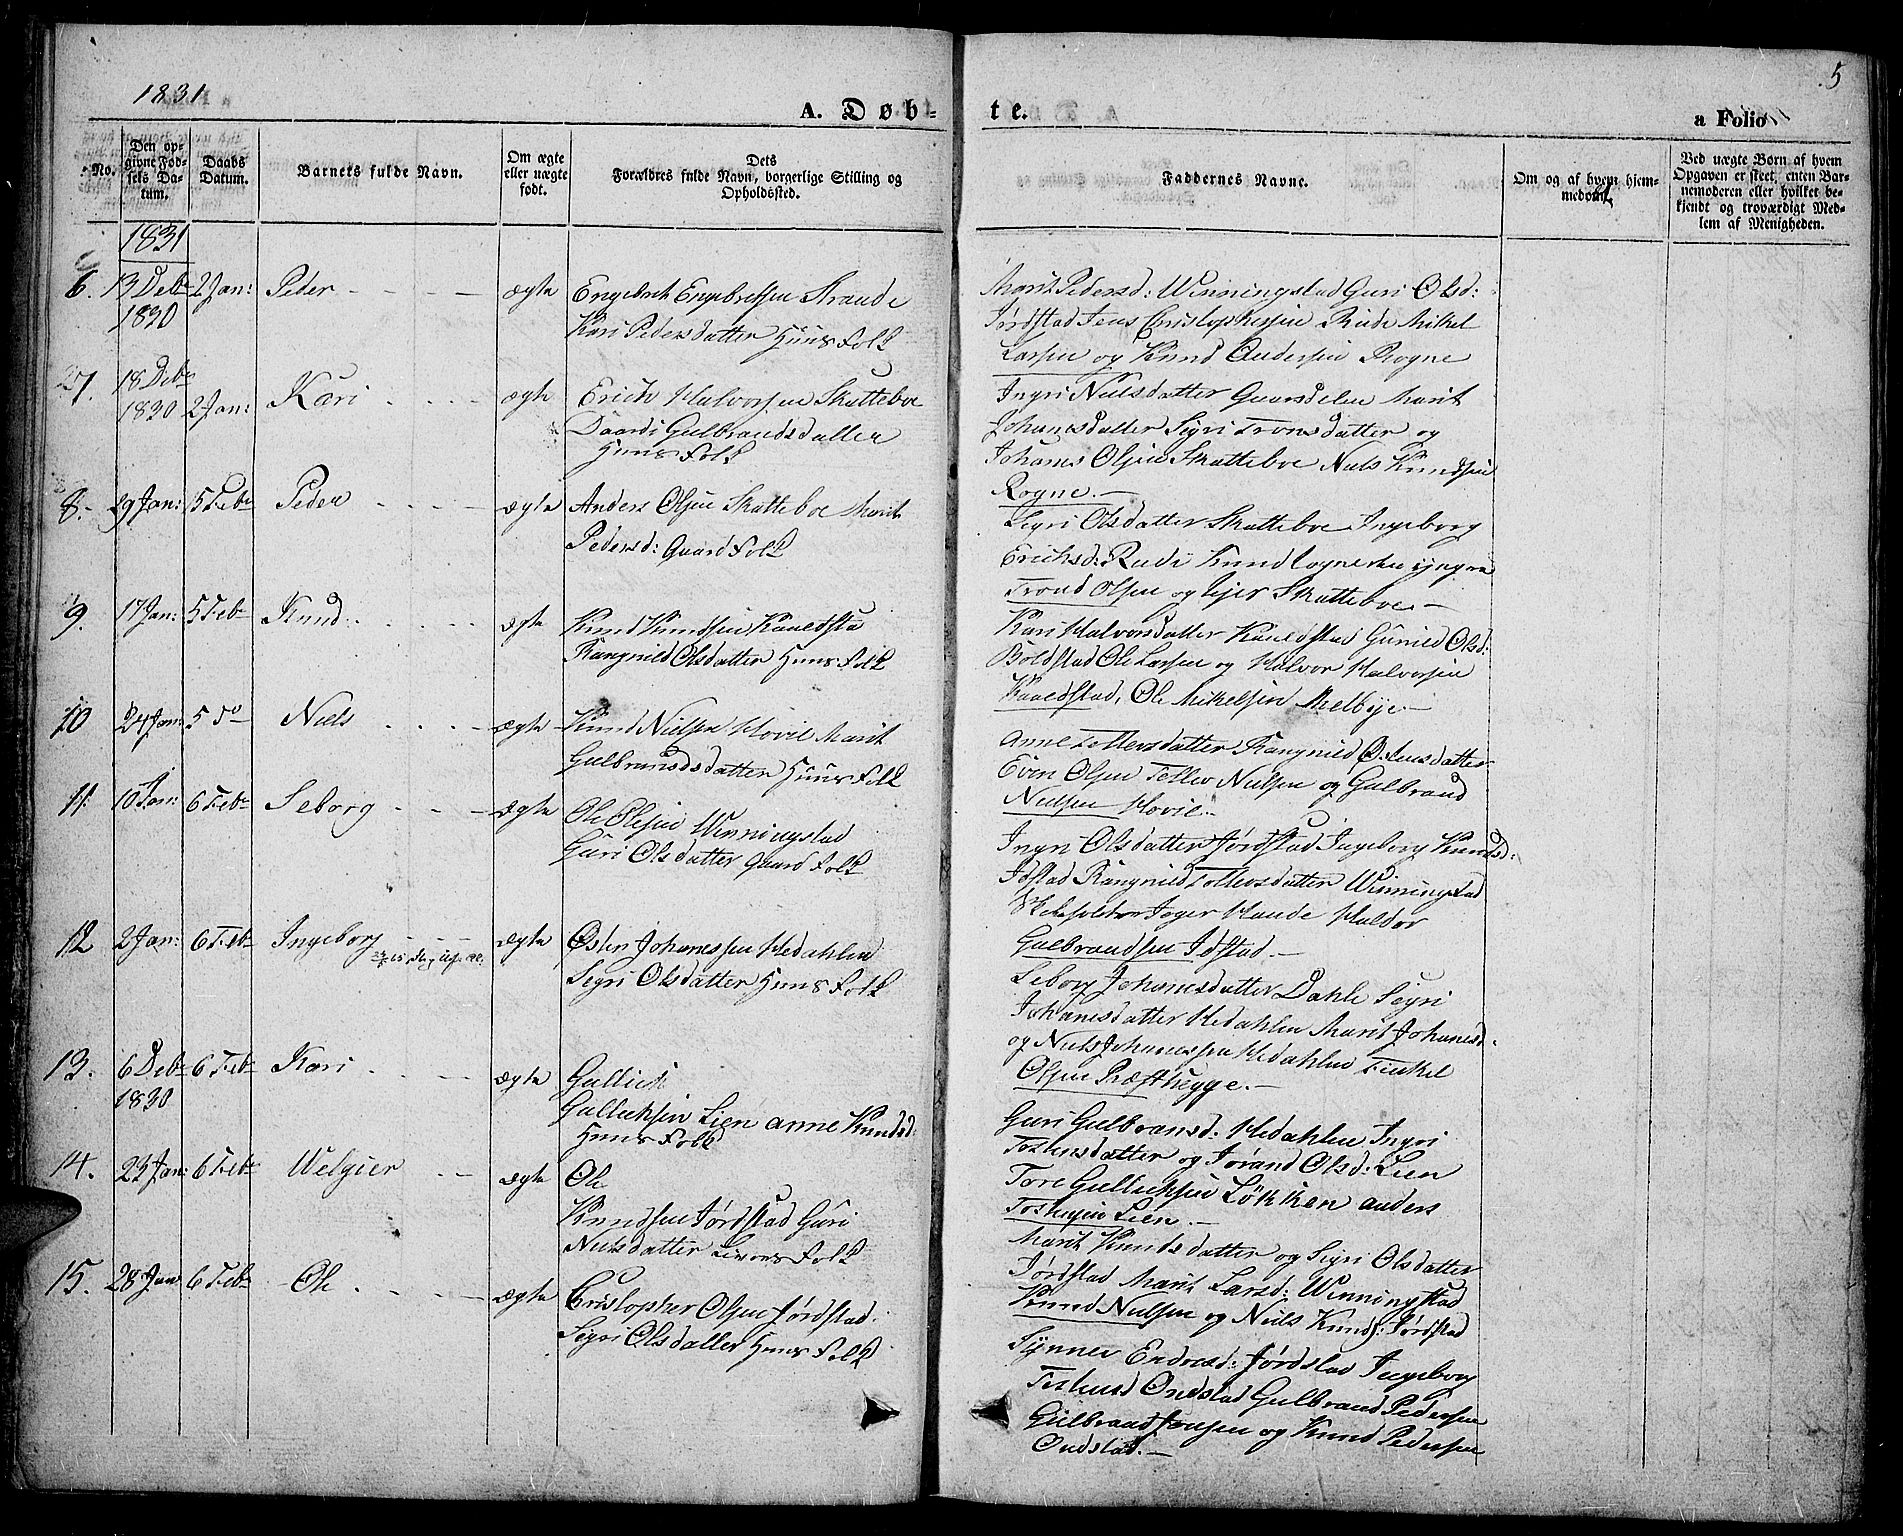 1831
5
A. Døb-
te.
a Folio
No.
Den op-
givne Fød-
sels Da-
tum.
Daabs
Datum.
Barnets fulde Navn.
Om ægte
eller uægte
født.
Dets
Forældres fulde Navn, borgerlige Stilling og
Opholdssted.
Faddernes Navne.
Om og af hvem hjem-
medøbt.
Ved uægte Børn af hvem
Opgaven er skeet, enten Bar-
nemoderen eller hvilket be-
kjendt og troværdigt Med-
lem af Menigheden.
1831
6. 13 Debr 2 Jan: Peder ægte Engebret Engebretsen Strande
1830 Kari Pedersdatter Huus Folk
Marit Pedersd: Winningstad Guri Olsd:
Jørdstad Jens Cristophersen Rude Mikel
Larsen og Knud Andersen Rogne
7. 18 Debr Kari ægte Erich Halvorsen Skatteboe
1830 2 Jan: Gulbrandsdatter
Huus Folk
Ingri Nielsdatter Marit
Johanesdatter Segri Tronsdatter og
Johanes Olsen Skatteboe Niels Knudsen
Rogne.—
8. 29 Jan: 5 Febr Peder ægte Anders Olsen Skatteboe Marit
Pedersd: Gaard Folk
Segri Olsdatter Skatteboe Ingeborg
Erichsd: Rudi Knud
Trond Olsen og Skatteboe.—
9. 17 Jan: 5 Febr Knud ægte Knud Knudsen Kaaldsta
Rangnild Olsdatter Huus Folk
Kari Halvorsdatter Kaaldstad Gunild Olsd:
Boldstad Ole Larsen og Halvor Halvorsen
Kaaldstad, Ole Mikelsen Melbye.—
10 24 Jan: 5 Do Niels ægte Knud Nielsen Hovil Marit
Gulbrandsdatter Huus Folk
Anne Tollevsdatter Rangnild Ostensdatter
Even Olsen Tollev Nielsen og Gulbrand
Nielsen Hovil.
11. 10 Jan: 6 Febr Seborg ægte Ole Olesen Winningstad
Guri Olsdatter Gaard Folk
Ingri Olsdatter Jørdstad Ingeborg Knudsd:
Idstad Rangnild Tollevsdatter Winningstad
Haude Haldor
Gulbrandsen Idstad.—
12 2 Jan: 6 Febr Ingeborg ægte Østen Johanessen Hedahlen
Segri Olsdatter Huus Folk
Seborg Johanesdatter Dahle Segri
Johanesdatter Hedahlen Marit Johanesd:
og Niels Johanessen Hedahlen
Olsen Præsthegge.—
13. 6 Debr 6 Febr Kari ægte Gullick
1830 Gullicksen Lien Anne Knudsd:
Huus Folk
Guri Gulbransd: Hedahlen Ingri
Tostensdatter og Jørand Olsd: Lien
Tore Gullicksen Løkken Anders
Tostensen Lien.—
14. 23 Jan: 6 Febr Welgier ægte Ole
Knudsen Jørdstad Guri
Nielsdatter Folk
Marit Knudsdatter og Segri Olsdatter
Jørdstad Marit Larsd: Winningstad
Knud Nielsen og Niels Knuds: Jørdstad
15. 28 Jan 6 Febr Ole ægte Cristopher Olsen Jørdstad
Segri Olsdatter Huus Folk
Synnev Endresd: Jørdstad Ingeborg
Ondstad Gulbrand Pedersen
Gulbrand Jensen og Knud Pedersen
Ondstad.—